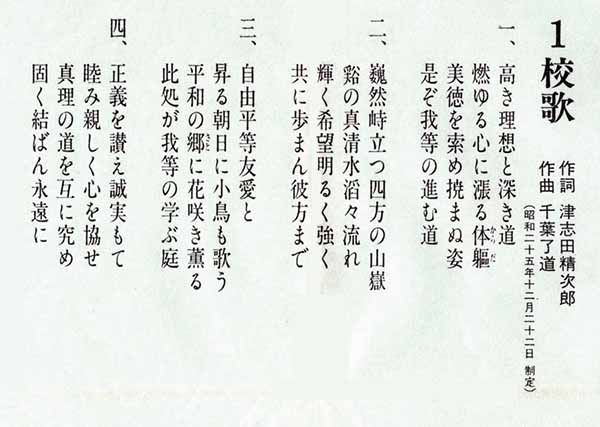 1 校歌
作詞 津志田精次郎
作曲 千葉了道
（昭和二十五年十二月二十二日 制定）
一、高き理想と深き道
燃ゆる心に漲る体軀
からだ
美徳を索め撓まぬ姿
是ぞ我等の進む道
二、巍然峙立つ四方の山嶽
谿の真清水滔々流れ
輝く希望明るく強く
共に歩まん彼方まで
三、自由平等友愛と
昇る朝日に小鳥も歌う
平和の郷に花咲き薫る
さと
此処が我等の学ぶ庭
四、正義を讃え誠実もて
睦み親しく心を協せ
真理の道を互に究め
固く結ばん永遠に